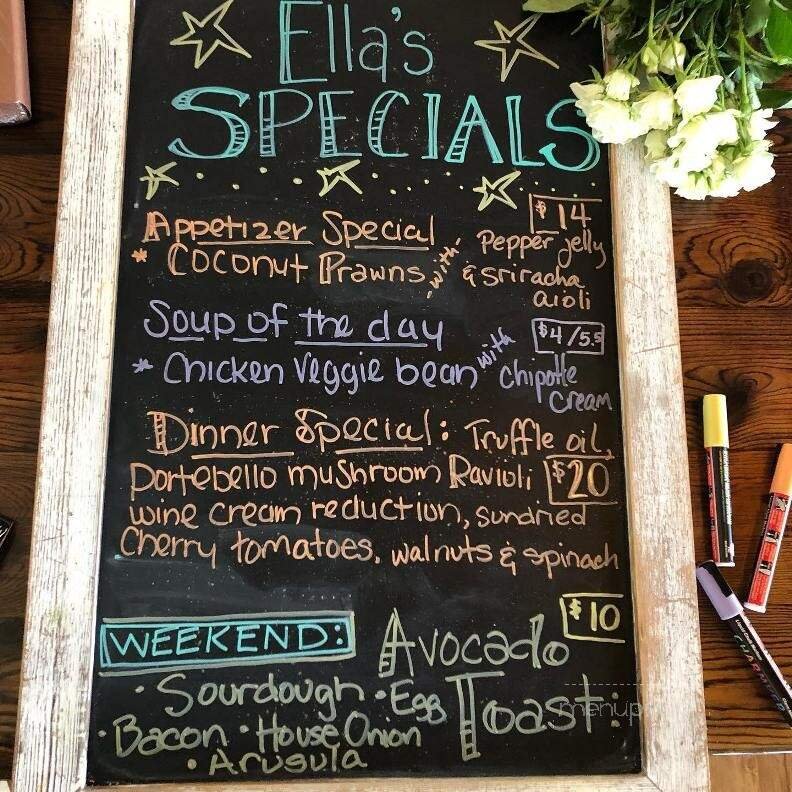 Ella's
SPECIALS
Appetizer Special $14
* Coconut Prawns -with- Pepper jelly
& sriracha
aioli
Soup of the day $4/5.5
* Chicken Veggie bean with chipotle
cream
Dinner Special: Truffle oil,
portebello mushroom Ravioli $20
wine cream reduction, sundried
Cherry tomatoes, walnuts & spinach
WEEKEND: Avocado $10
Toast:
• Sourdough • Egg
• Bacon • House Onion
• Arugula
menupix